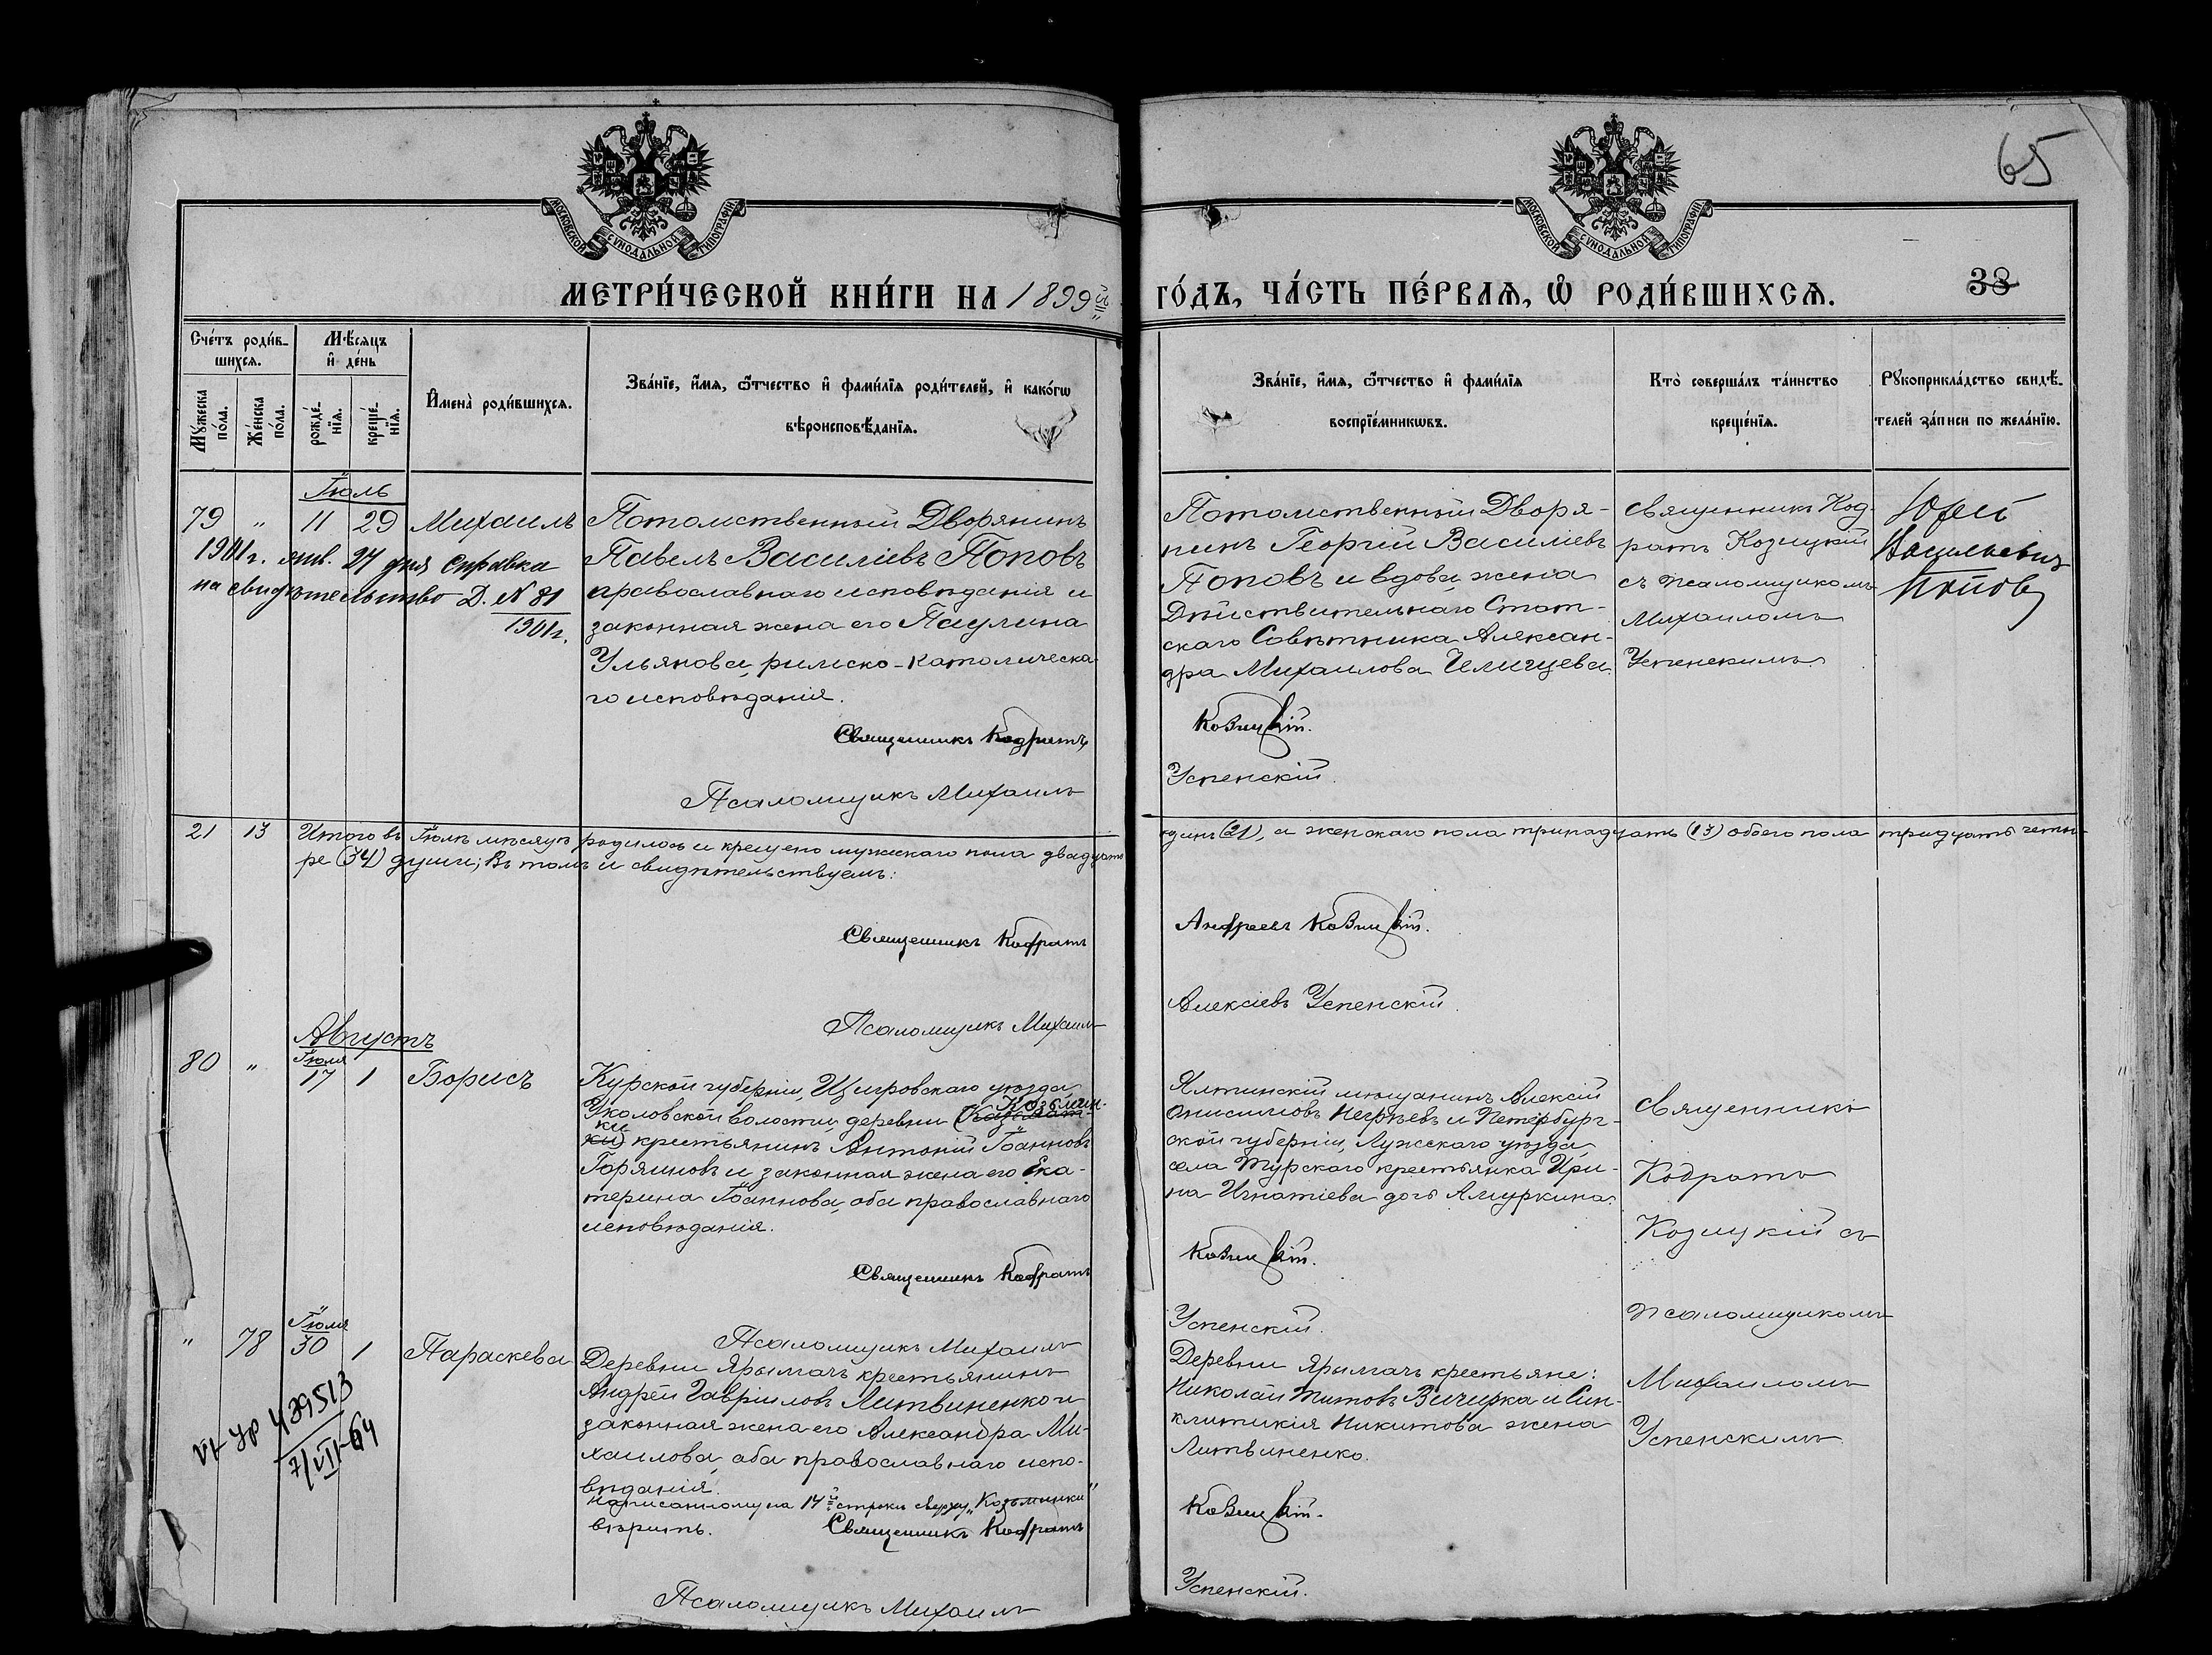 65
МОСКОВСКОЙ СУНОДАЛЬНОЙ ТИПОГРАФІИ
МОСКОВСКОЙ СУНОДАЛЬНОЙ ТИПОГРАФІИ
МЕТРИ́ЧЕСКОЙ КНИ́ГИ НА 1899 й
ГО́ДЪ, ЧА́СТЬ ПЕ́РВАѦ, Ѽ РОДИ́ВШИХСѦ.
38
Сче́тъ роди́в-
шихсѧ.
Мѣ́сяцъ
и҆ де́нь
Му́жеска
по́ла.
Же́нска
по́ла.
рожде́-
нїѧ.
креще́-
нїѧ.
И҆мена̀ роди́вшихсѧ.
Зва́нїе, и҆́мѧ, ѻ҆́тчество и҆ фами́лїѧ роди́телей, и҆ како́гѡ
вѣроисповѣ́данїѧ.
Зва́нїе, и҆́мѧ, ѻ҆́тчество и҆ фами́лїѧ
воспрїе́мникѡвъ.
Кто̀ соверша́лъ та́инство
креще́нїѧ.
Рꙋкоприкла́дство свидѣ́-
телей за́писи по жела́нїю.
Іюль
79 " 11 29 Михаилъ
1901 г. янв. 27 дня справка
на свидѣтельство Д. № 81
1901 г.
Потомственный Дворянинъ
Павелъ Василіевъ Поповъ
православнаго исповѣданія и
законная жена его Паулина
Ульянова, римско-католическа
го исповѣданія.
Священникъ Кодратъ
Псаломщикъ Михаилъ
Потомственный Дворя-
нинъ Георгій Василіевъ
Поповъ и вдова жена
Дѣйствительнаго Стат-
скаго Совѣтника Алексан-
дра Михаилова Челищева.
Козицкій.
Успенскій.
Священникъ Код-
ратъ Козицкій
съ псаломщикомъ
Михаиломъ
Успенскимъ.
Юрій
Васильевич
Попов
21 13 Итого въ Іюлѣ мѣсяцѣ родилось и крещено мужскаго пола двадцать
одинъ (21), а женскаго пола тринадцать (13) обоего пола тридцать четы-
ре (34) души; Въ томъ и свидѣтельствуемъ:
Священникъ Кодратъ
Андреевъ Козицкій.
Псаломщикъ Михаилъ
Алексіевъ Успенскій.
Августъ
Іюля
80 " 17 1 Борисъ
Курской губерніи, Щигровскаго уѣзда
Уколовской волости, деревни
Козьмин-
ки
крестьянинъ Антоній Іоанновъ
Горяиновъ и законная жена его Ека-
терина Іоаннова, оба православнаго
исповѣданія.
Священникъ Кодратъ
Псаломщикъ Михаилъ
Ялтинскій мѣщанинъ Алексій
Онисимовъ и Петербург-
ской губерніи, Лужскаго уѣзда,
села Турскаго крестьянка Ири-
на Игнатіева дочь Амуркина.
Козицкій.
Успенскій.
Священникъ
Кодратъ
Козицкій съ
псаломщикомъ
Михаиломъ
Успенскимъ.
Іюля
" 78 30 1 Параскева
439513
7/VII-64
Деревни Ярылгачъ крестьянинъ
Андрей Гавріиловъ Литвиненко и
законная жена его Александра Ми-
хаилова, оба православнаго испо-
вѣданія.
Написанному на 14й строкѣ сверху „Козьминки"
вѣрить.
Священникъ Кодратъ
Псаломщикъ Михаилъ
Деревни Ярылгачъ крестьяне:
Николай Титовъ Вичирка и Син-
клитикія Никитова жена
Литвиненко.
Козицкій.
Успенскій.